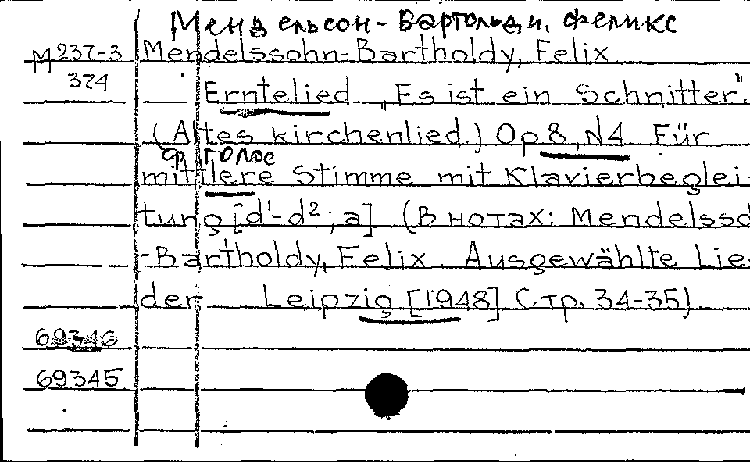 Мендельсон-Бартольди, Феликс
М 237-3 Mendelssohn-Bartholdy, Felix
374 Erntelied „Es ist ein Schnitter".
(Altes Kirchenlied.) Op 8, N4 Für
ср. голос
mittlere Stimme mit Klavierbeglei-
tung [d¹-d², a] (В нотах: Mendelsso
-Bartholdy, Felix. Ausgewählte Lie-
der Leipzig [1948] Стр. 34-35)
69346
69345